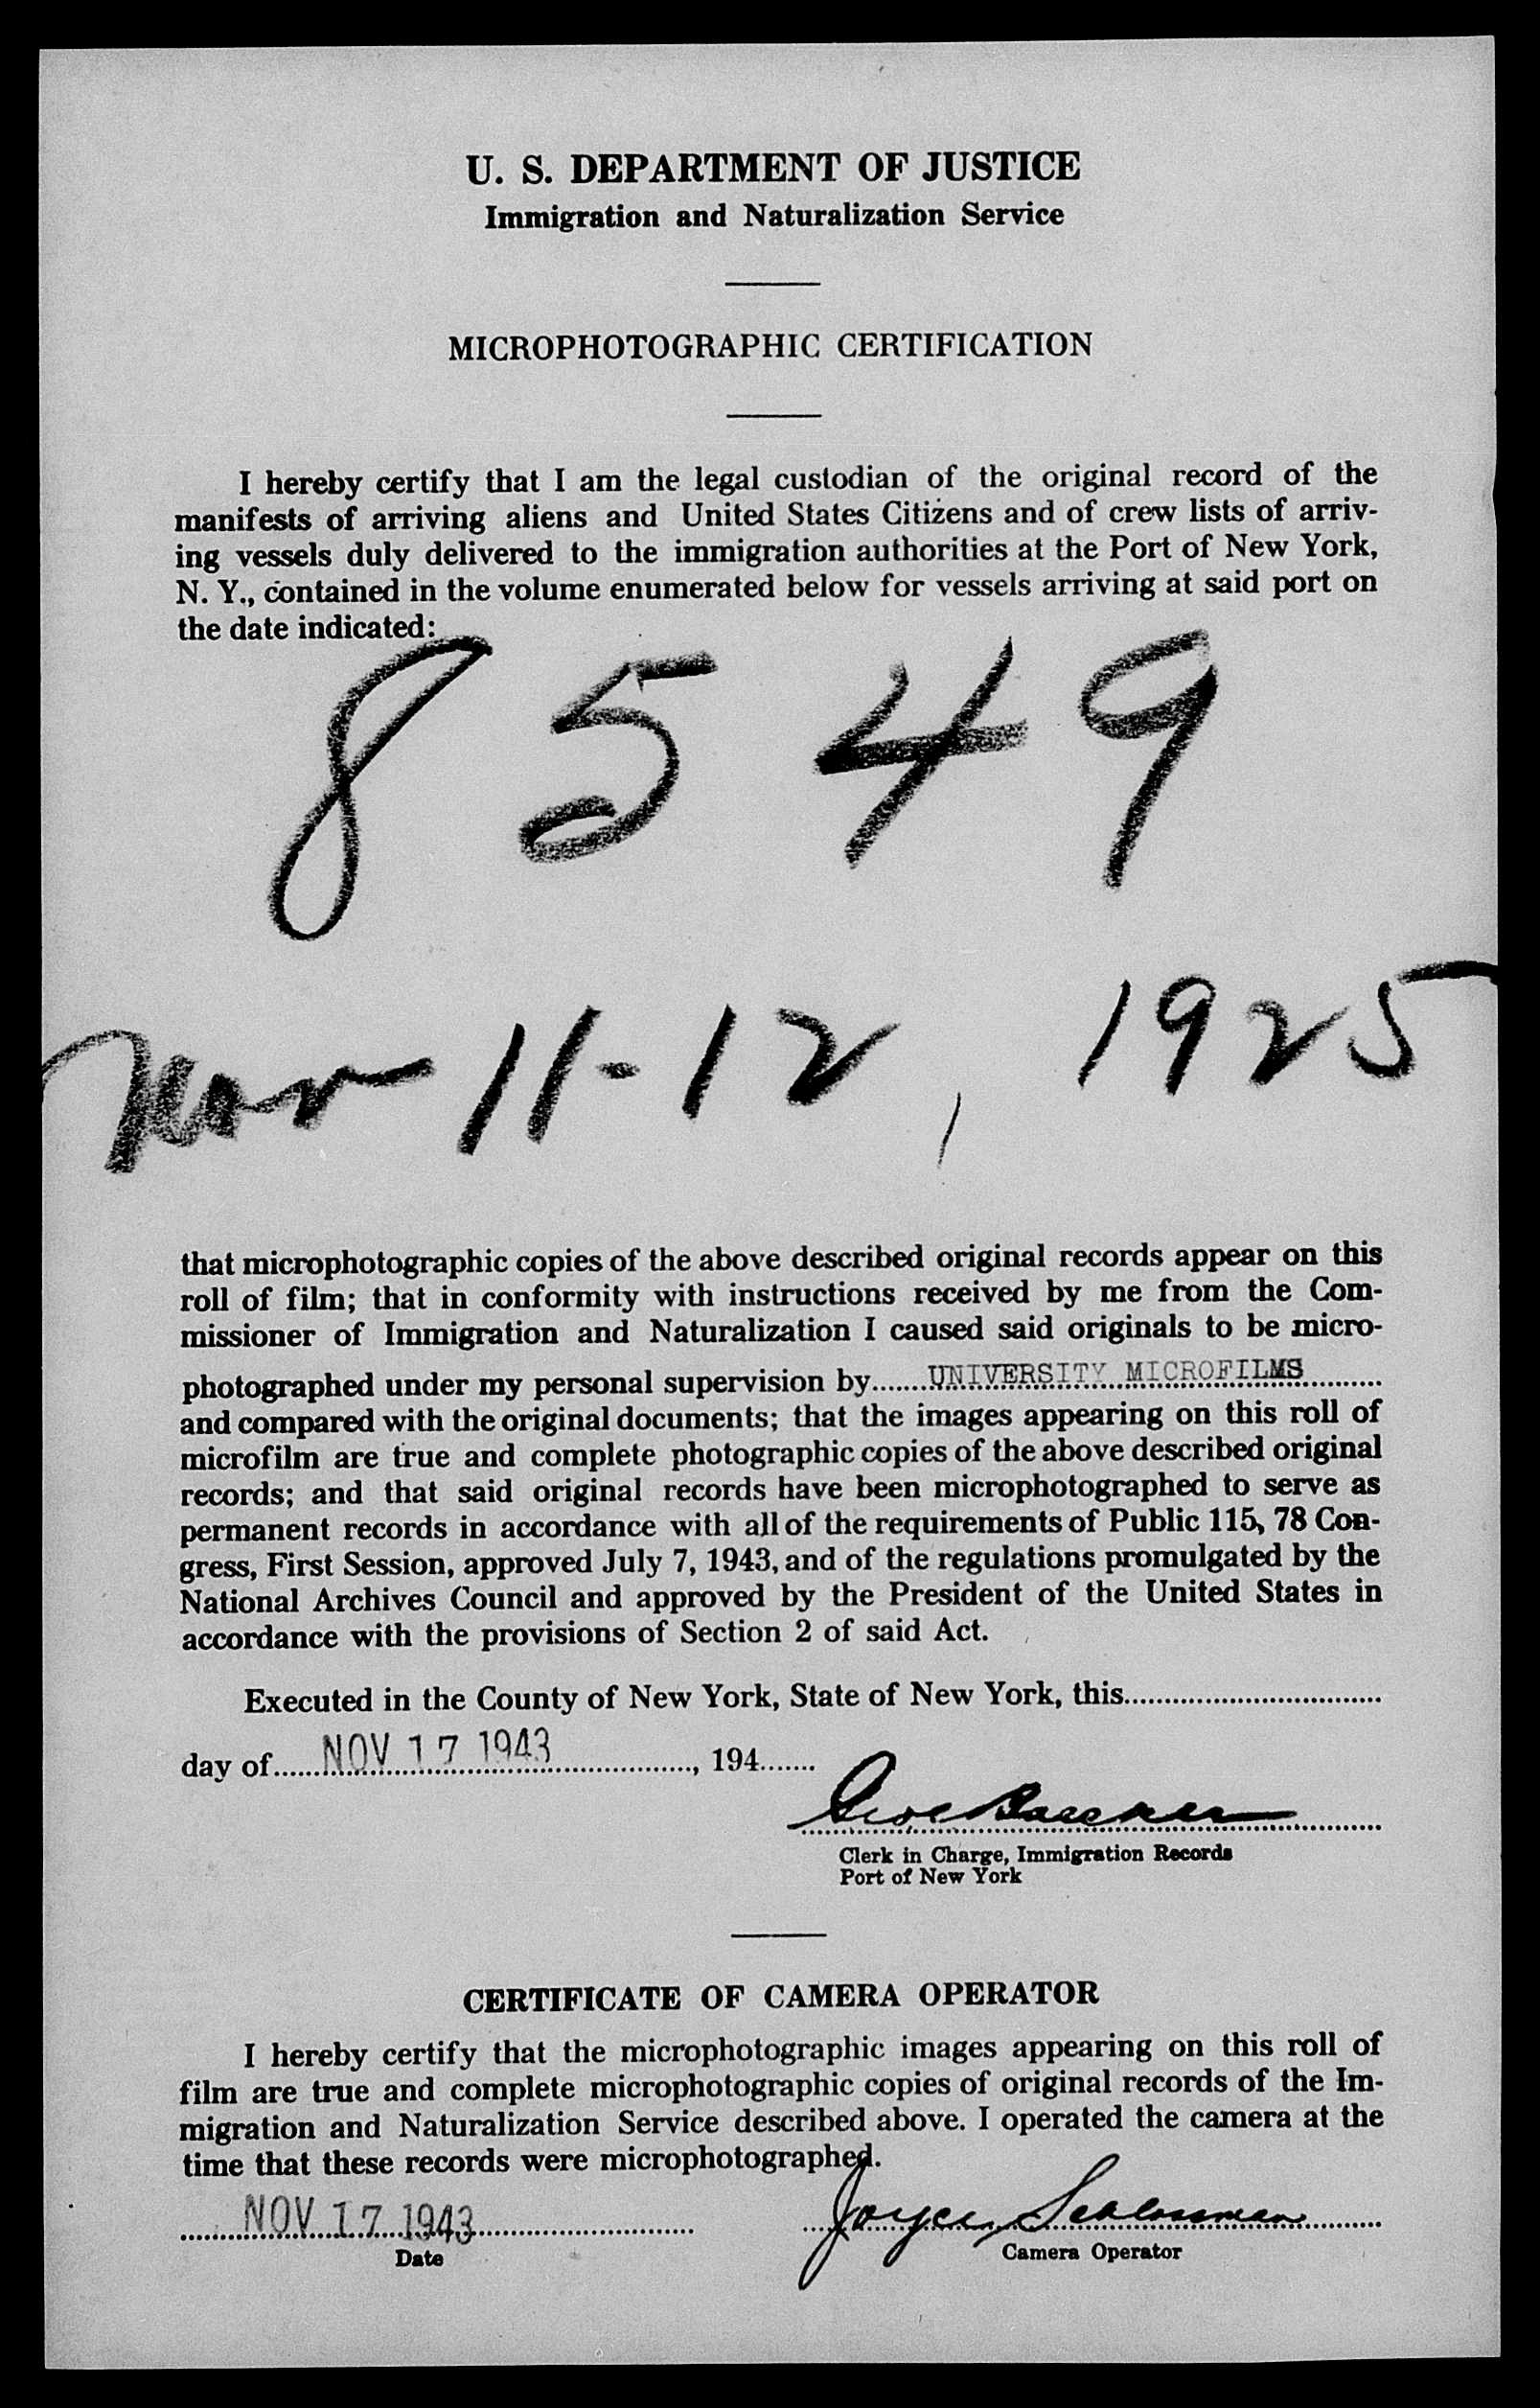 U. S. DEPARTMENT OF JUSTICE
Immigration and Naturalization Service
MICROPHOTOGRAPHIC CERTIFICATION
I hereby certify that I am the legal custodian of the original record of the
manifests of arriving aliens and United States Citizens and of crew lists of arriv-
ing vessels duly delivered to the immigration authorities at the Port of New York,
N. Y., contained in the volume enumerated below for vessels arriving at said port on
the date indicated:
8549
Nov 11-12, 1925
that microphotographic copies of the above described original records appear on this
roll of film; that in conformity with instructions received by me from the Com-
missioner of Immigration and Naturalization I caused said originals to be micro-
photographed under my personal supervision by.......UNIVERSITY MICROFILMS..........
and compared with the original documents; that the images appearing on this roll of
microfilm are true and complete photographic copies of the above described original
records; and that said original records have been microphotographed to serve as
permanent records in accordance with all of the requirements of Public 115, 78 Con-
gress, First Session, approved July 7, 1943, and of the regulations promulgated by the
National Archives Council and approved by the President of the United States in
accordance with the provisions of Section 2 of said Act.
Executed in the County of New York, State of New York, this................................
day of......NOV 17 1943.................., 194.......
Clerk in Charge, Immigration Records
Port of New York
CERTIFICATE OF CAMERA OPERATOR
I hereby certify that the microphotographic images appearing on this roll of
film are true and complete microphotographic copies of original records of the Im-
migration and Naturalization Service described above. I operated the camera at the
time that these records were microphotographed.
NOV 17 1943
Joyce Schlossman
Date
Camera Operator